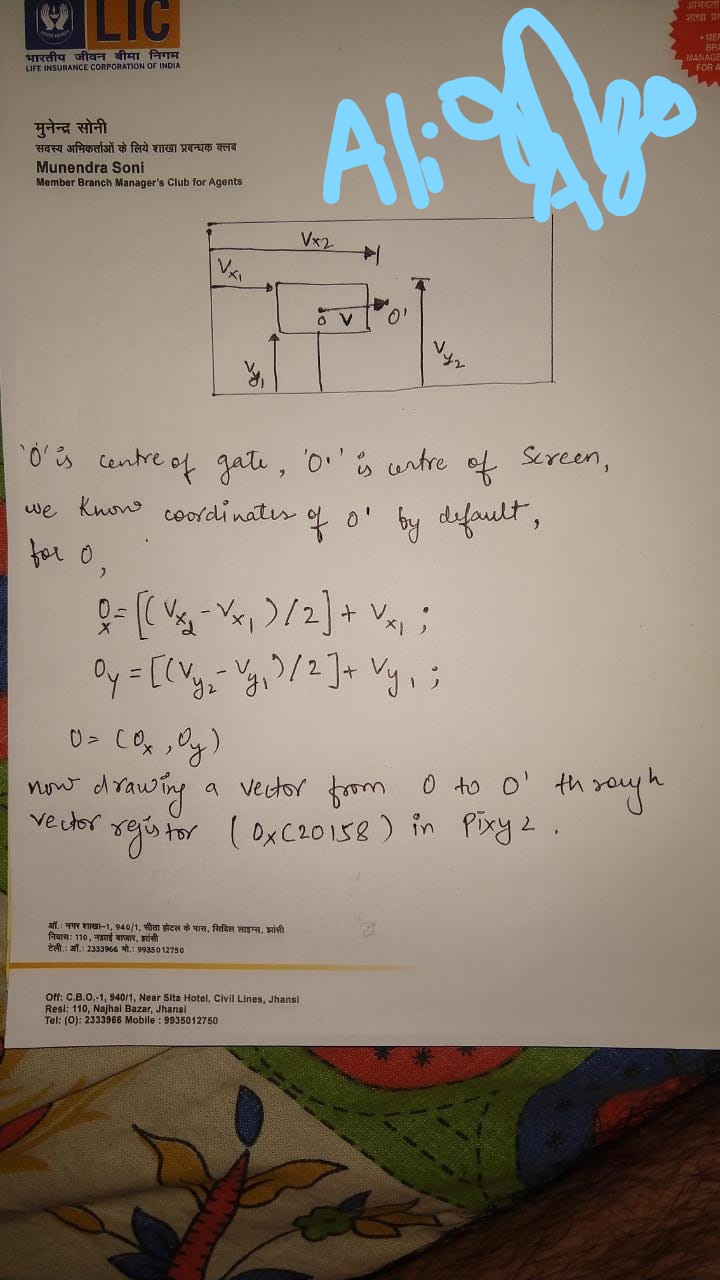 LIC
भारतीय जीवन बीमा निगम
LIFE INSURANCE CORPORATION OF INDIA
शाखा
MANAGE
FOR A
मुनेन्द्र सोनी
सदस्य अभिकर्ताओं के लिये शाखा प्रबन्धक क्लब
Munendra Soni
Member Branch Manager's Club for Agents
Ali Algo
Vx2
Vx1
O V O'
Vy1
Vy2
'O' is centre of gate, 'O'' is centre of Screen,
we know coordinates of O' by default,
for O,
Ox = [(Vx2 - Vx1)/2] + Vx1;
Oy = [(Vy2 - Vy1)/2] + Vy1;
O = (Ox, Oy)
now drawing a vector from O to O' through
vector registor (0xC20158) in Pixy2.
ऑ.: नगर शाखा-1, 940/1, सीता होटल के पास, सिविल लाइन्स, झांसी
निवास: 110, नझाई बाजार, झांसी
टेली.: ऑ.: 2333966 मो.: 9935012750
Off: C.B.O.-1, 940/1, Near Sita Hotel, Civil Lines, Jhansi
Resi: 110, Najhai Bazar, Jhansi
Tel: (O): 2333966 Mobile : 9935012750